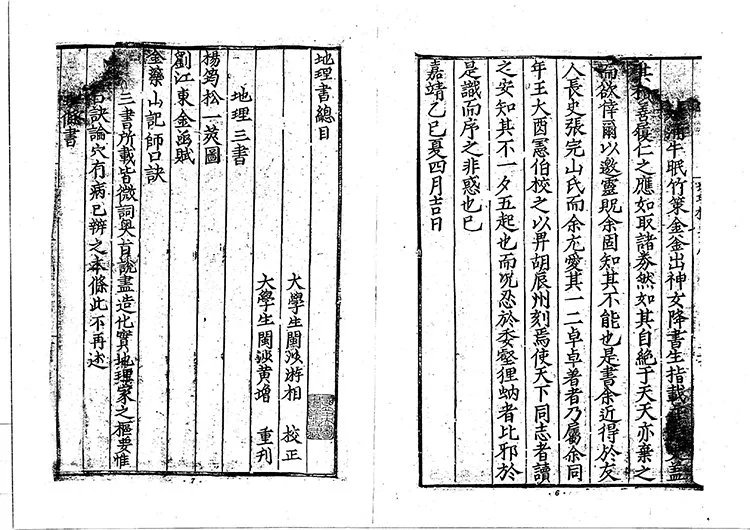 牛眠竹策金釜出神女降書生指載
善獲仁之應如取諸券然如其自絕于天天亦棄之
而欲倖爾以邀靈貺余固知其不能也是書余近得於友
人長史張完山氏而余尤愛其一二卓卓著者乃屬余同
年王大酉憲伯校之以畀胡辰州刻焉使天下同志者讀
之安知其不一夕五起也而況忍於委壑狸蚋者比邪於
是識而序之非惑也已
嘉靖乙巳夏四月吉日
6
地理書總目
大學生閩游相 校正
大學生閩黃增 重刊
地理三書
楊筠松一莢圖
劉江東金函賦
金藥山記師口訣
三書所載皆微詞奧旨說盡造化實地理家之樞要惟
口訣論穴有病已辨之本條此不再述
條書
7